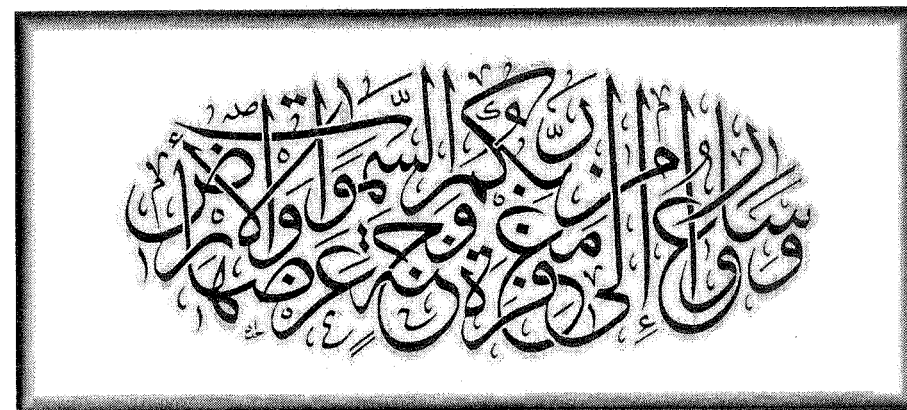 وسارعوا إلى مغفرة من ربكم وجنة عرضها السموات والأرض